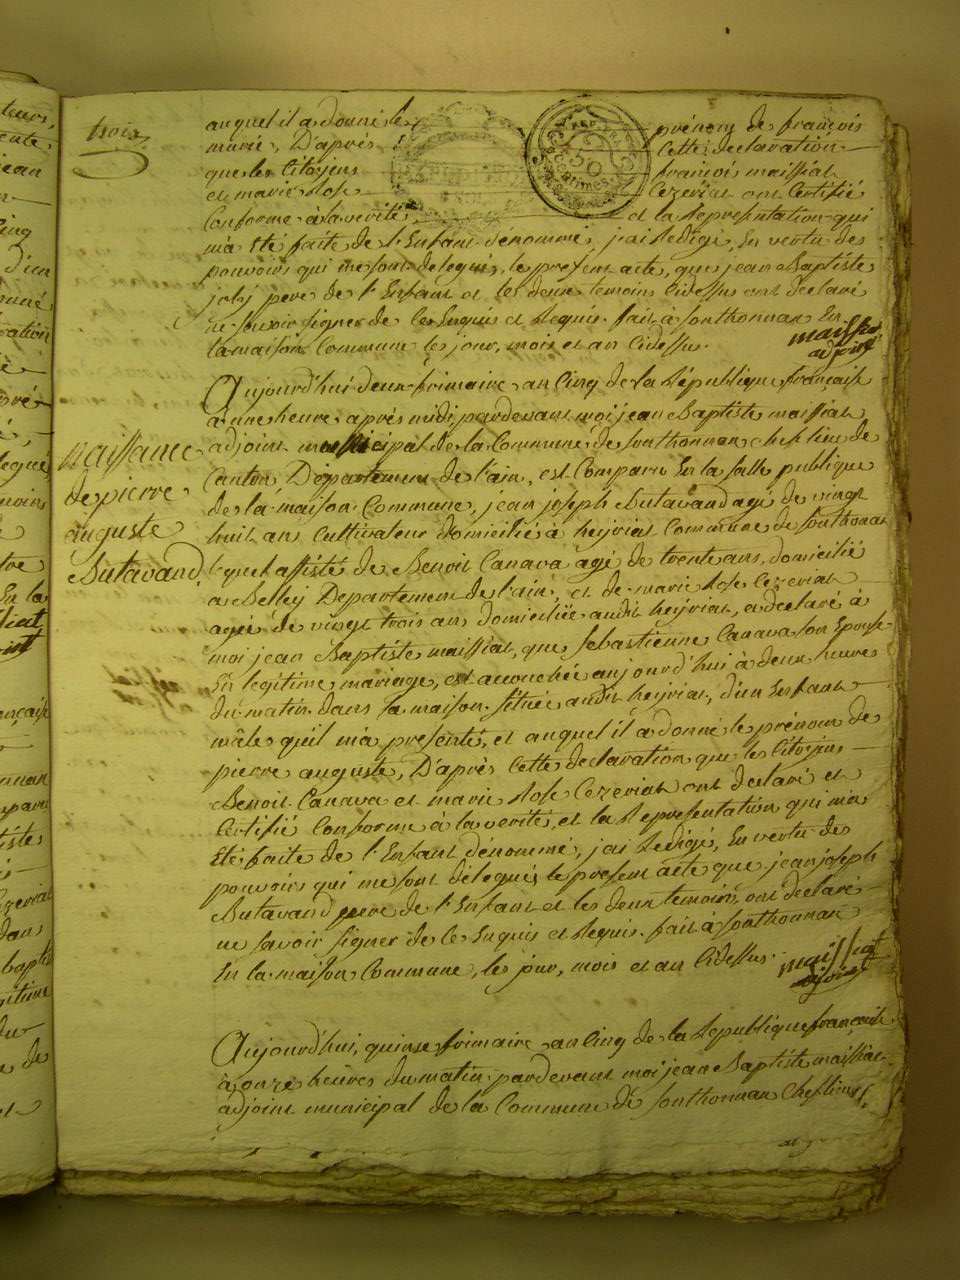 trois
auquel il a donné le prénom de françois
marie, D'après cette déclaration
que les Citoyens françois maissiat
et marie Rose Cezeriat ont Certifié
Conforme à la verité, et la Représentation qui
m'a Eté faite de l'Enfant dénommé, j'ai Redigé, En vertu des
pouvoirs qui me sont délegués, le présent acte, que jean Baptiste
joly pere de l'Enfant et les deux temoins Cidessus ont declaré
ne savoir signer de ce Enquis et Requis. fait à sonthonnax En
la maison Commune les jour, mois et an Cidessus.
maissiat
adjoint
50
Centimes
Aujourd'hui deux frimaire an Cinq de la République française
à une heure après midi, pardevant moi jean Baptiste maissiat
adjoint municipal de la Commune de sonthonnax chef lieu de
Canton Département de l'ain, est Comparu En la salle publique
de la maison Commune, jean joseph Butavand agé de vingt
huit ans Cultivateur domicilié à heyriat Commune de sonthonnax
lequel assisté de Benoit Canava agé de trente ans, domicilié
a Belley Département de l'ain, et de marie Rose Cezeriat
agée de vingt trois ans domiciliée audit heyriat, a declaré à
moi jean Baptiste maissiat, que Sebastienne Canava son Epouse
En legitime mariage, est accouchée aujourd'hui à deux heures
du matin dans sa maison située audit heyriat, d'un Enfant
mâle qu'il m'a presenté, et auquel il a donné le prénom de
pierre auguste, D'après Cette declaration que les Citoyens
Benoit Canava et marie Rose Cezeriat ont declaré et
Certifié Conforme à la verité, et la Representation qui m'a
Eté faite de l'Enfant dénommé, j'ai Redigé, En vertu des
pouvoirs qui me sont délegués le present acte que jean joseph
Butavand pere de l'Enfant et les deux temoins, ont declaré
ne savoir signer de ce Enquis et Requis. fait à sonthonnax
En la maison Commune, les jour, mois et an Cidessus.
maissiat
adjoint
naissance
de pierre
auguste
Butavand.
Aujourd'hui, quinze frimaire an Cinq de la Republique française
à onze heures du matin, pardevant moi jean Baptiste maissiat
adjoint municipal de la Commune de sonthonnax Chef lieu